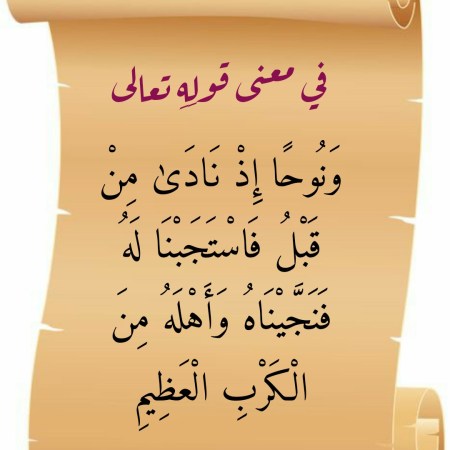 في معنى قولِه تعالى
وَنُوحًا إِذْ نَادَىٰ مِنْ
قَبْلُ فَاسْتَجَبْنَا لَهُ
فَنَجَّيْنَاهُ وَأَهْلَهُ مِنَ
الْكَرْبِ الْعَظِيمِ